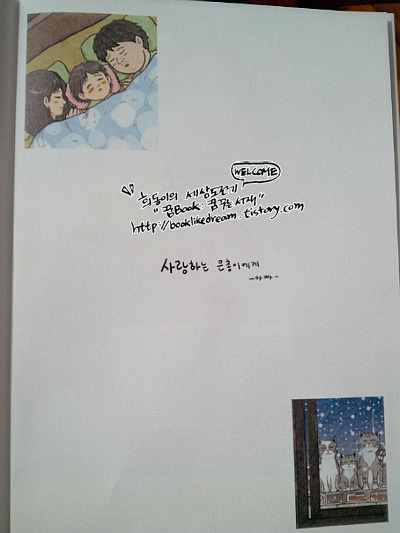 WELCOME
희동이의 세상도전기
"꿈Book·꿈꾸는 서재"
http://booklikedream.tistory.com
사랑하는 은총이에게
-아빠-